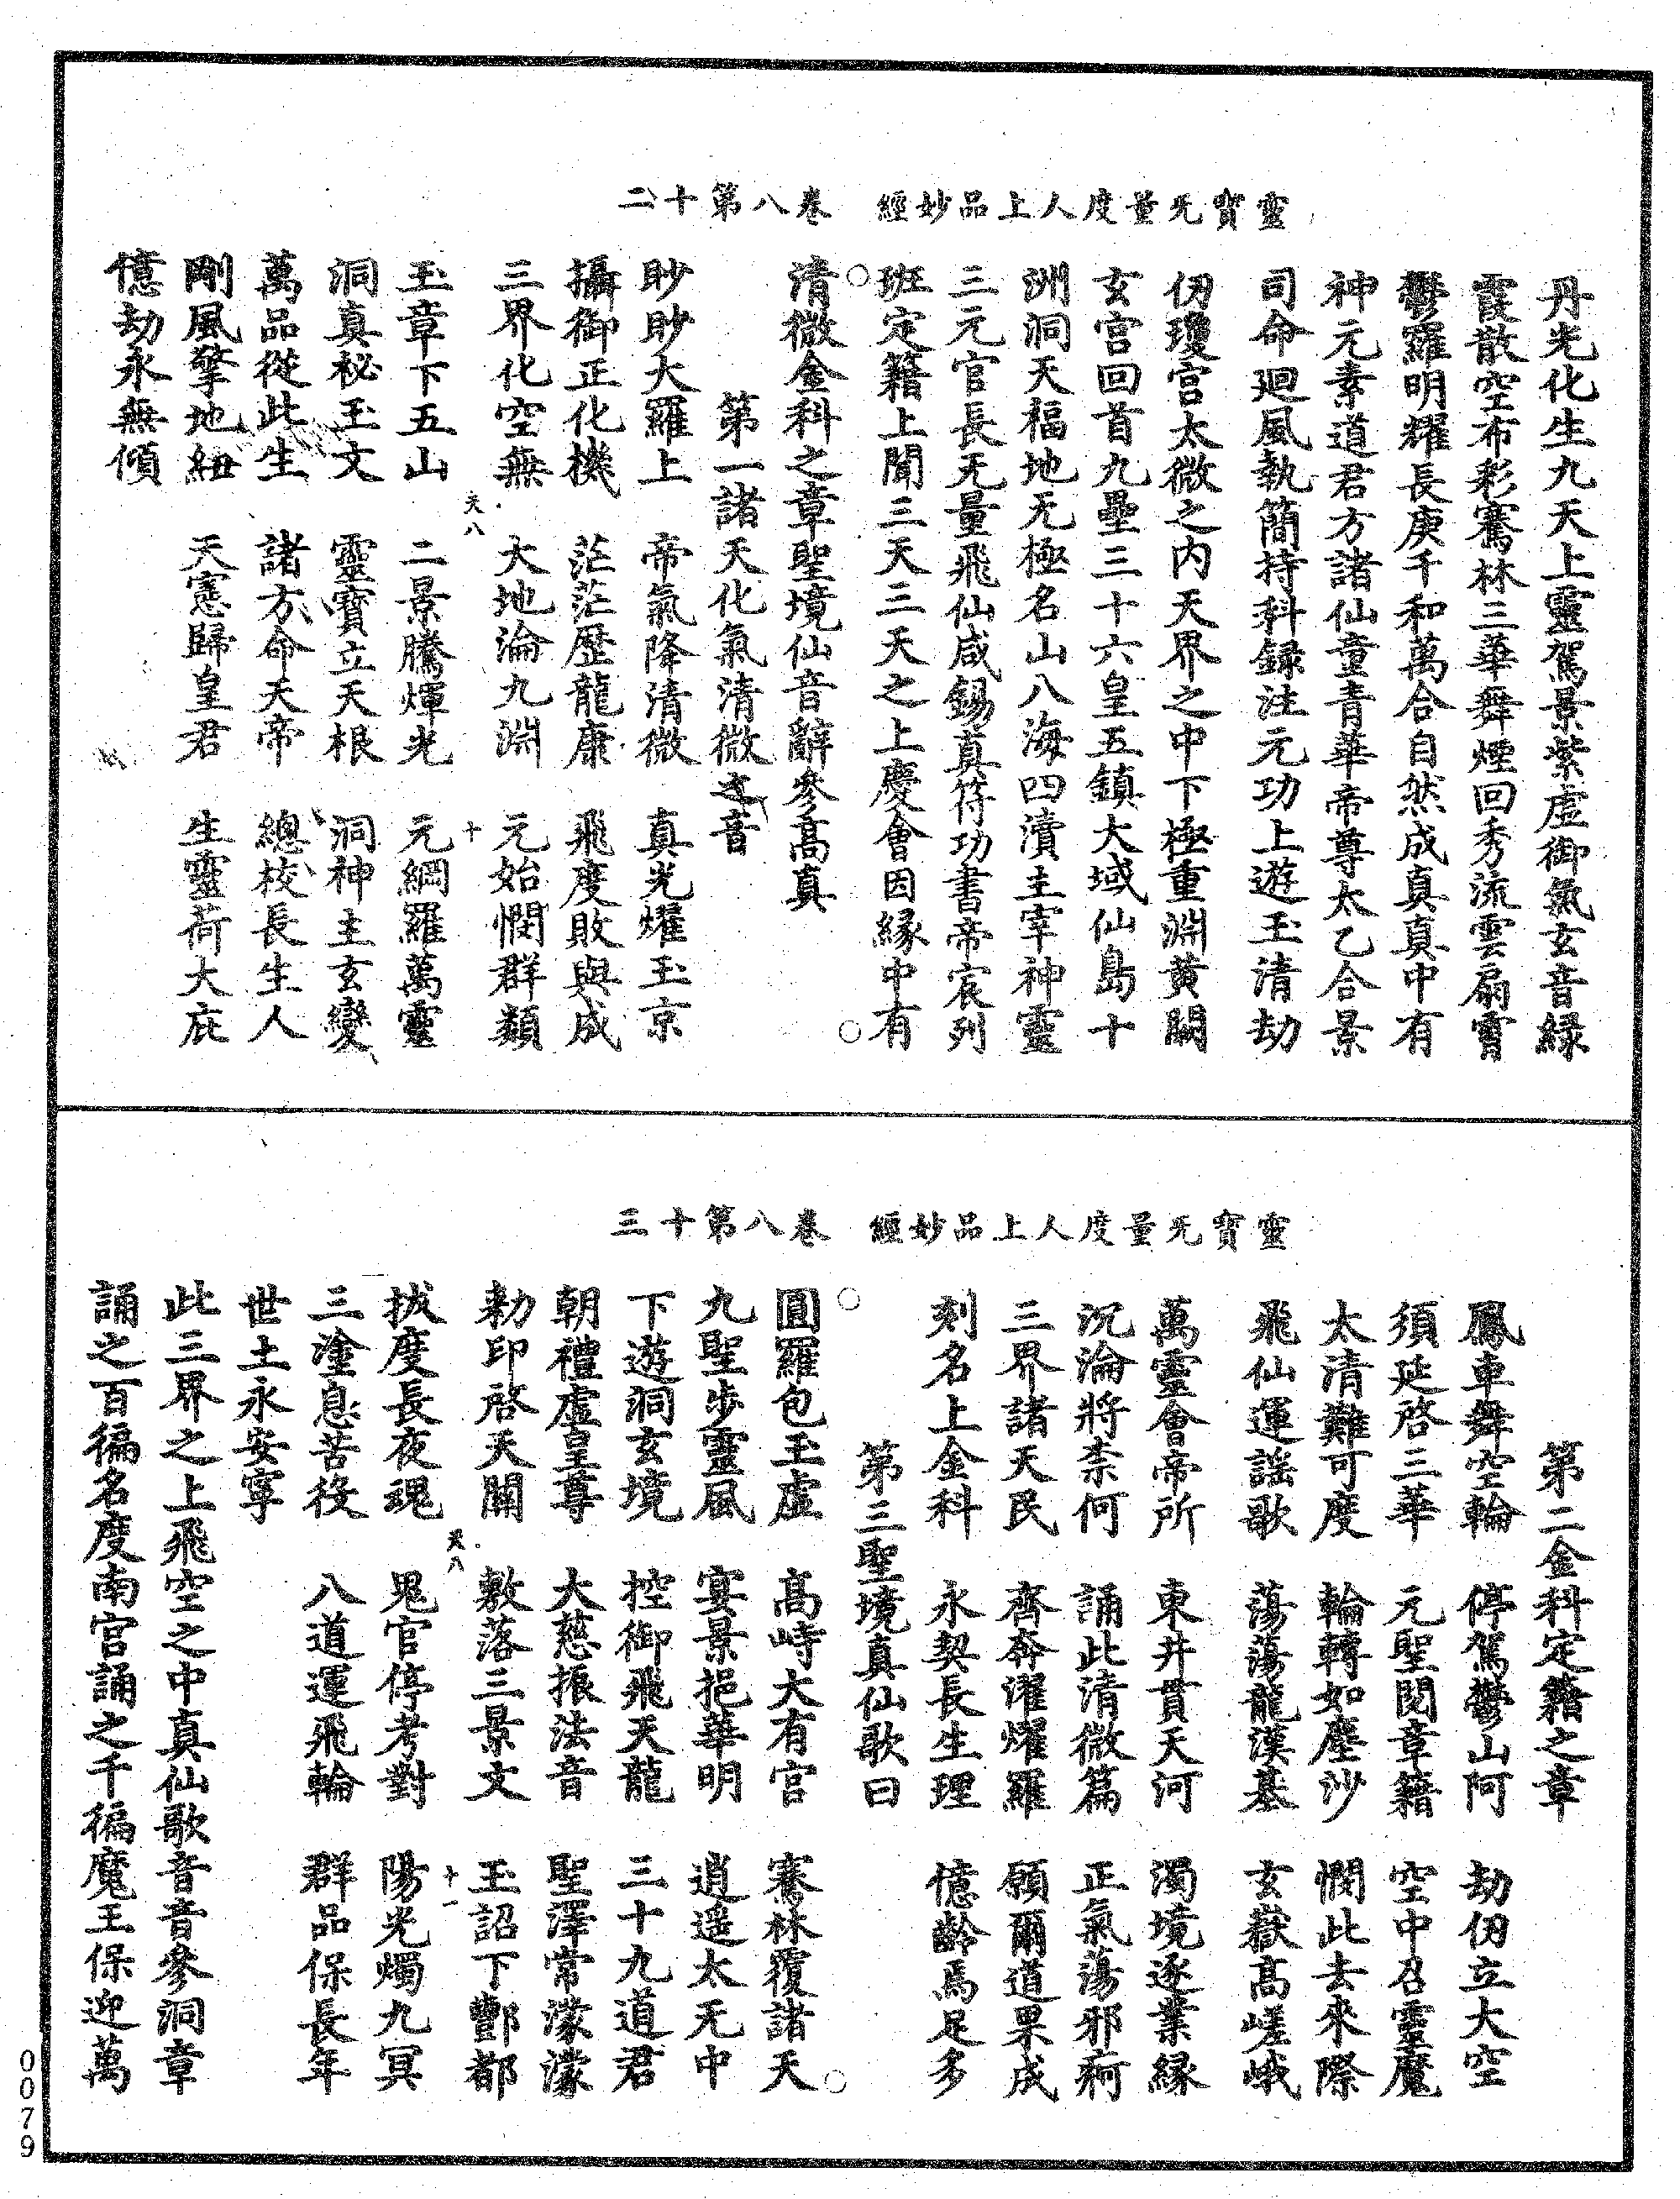 靈寶无量度人上品妙經　卷八第十二
丹光化生九天上靈駕景紫虛御氣玄音緣
霞散空布彩騫林三華舞煙回秀流雲扇霄
鬱羅明耀長庚千和萬合自然成真真中有
神元素道君方諸仙童青華帝尊太乙合景
司命廻風執簡持科録注元功上遊玉清劫
仞瓊宮太微之內天界之中下極重淵黃闕
玄宮回首九壘三十六皇五鎮大域仙島十
洲洞天福地无極名山八海四瀆主宰神靈
三元官長无量飛仙咸錫真符功書帝宸列
班定籍上聞三天三天之上慶會因緣中有
清微金科之章聖境仙音辭參高真
第一諸天化氣清微之音
眇眇大羅上　帝氣降清微　真光燿玉京
攝御正化機　茫茫歷龍康　飛度敗與成
三界化空無　大地淪九淵　元始憫群類
天八　十
玉章下五山　二景騰煇光　元綱羅萬靈
洞真秘玉文　靈寶立天根　洞神主玄變
萬品從此生　諸方命天帝　總校長生人
剛風擎地紐　天憲歸皇君　生靈荷大庇
億劫永無傾
靈寶无量度人上品妙經　卷八第十三
第二金科定籍之章
鳳車舞空輪　停駕鬱山阿　劫仞立大空
須延啓三華　元聖閱章籍　空中召靈魔
太清難可度　輪轉如塵沙　憫此去來際
飛仙運謡歌　蕩蕩龍漢基　玄嶽高嵯峨
萬靈會帝所　東井貫天河　濁境逐業緣
沉淪將柰何　誦此清微篇　正氣蕩邪痾
三界諸天民　齊奔濯燿羅　願爾道果成
刻名上金科　永契長生理　億齡焉足多
第三聖境真仙歌曰
圓羅包玉虛　高峙大有宮　騫林覆諸天
九聖步靈風　宴景挹華明　逍遥太无中
下遊洞玄境　控御飛天龍　三十九道君
朝禮虛皇尊　大慈振法音　聖澤常濛濛
勑印啓天關　敷落三景文　玉詔下酆都
天八　十一
拔度長夜魂　鬼官停考對　陽光燭九冥
三塗息苦役　八道運飛輪　群品保長年
世土永安寧
此三界之上飛空之中真仙歌音音參洞章
誦之百徧名度南宮誦之千徧魔王保迎萬
0079